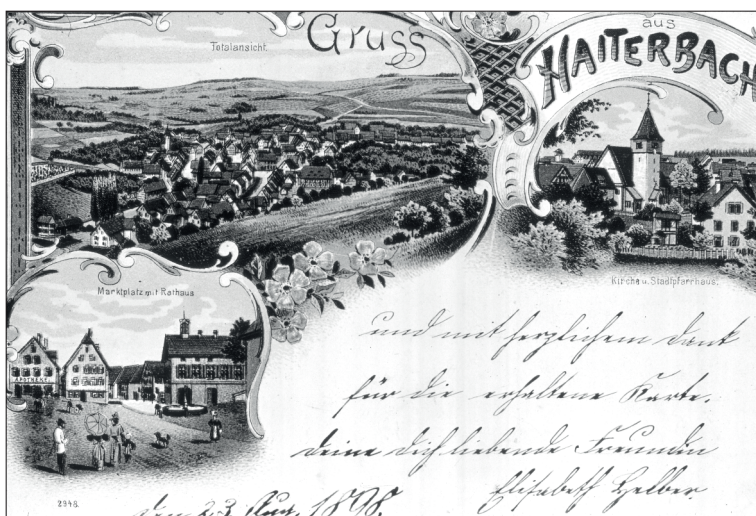 Totalansicht.
Gruss
aus
HAITERBACH
Kirche u. Stadtpfarrhaus.
Marktplatz mit Rathaus
APOTHEKE
und mit herzlichem Dank
für die erhaltene Karte.
Deine dich liebende Freundin
Elisabeth Helber
den 23. Aug. 1898.
2948.